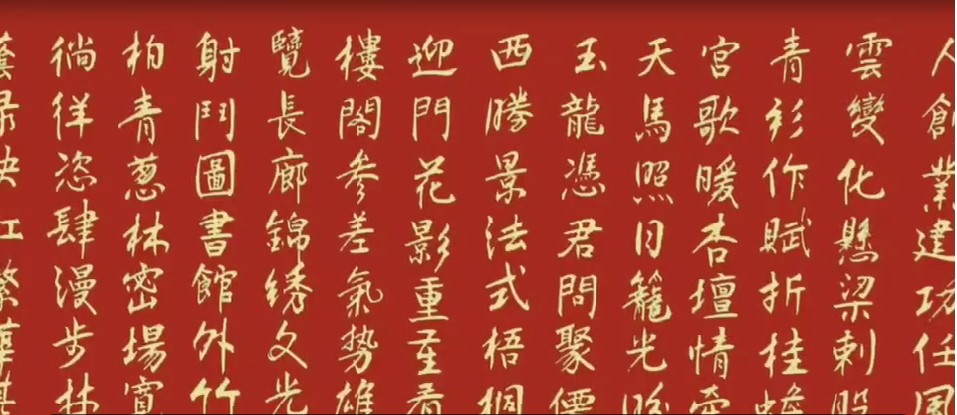 人創業建功任風
雲變化懸梁刺股
青衫作賦折桂蟾
宮歌暖杏壇情牽
天馬照月籠光
玉龍憑君問聚
西勝景法式梧桐
迎門花影重重看
樓閣參差氣勢雄
覽長廊錦綉文光
射鬥圖書館外竹
柏青蔥林密場寬
徜徉恣肆漫步林